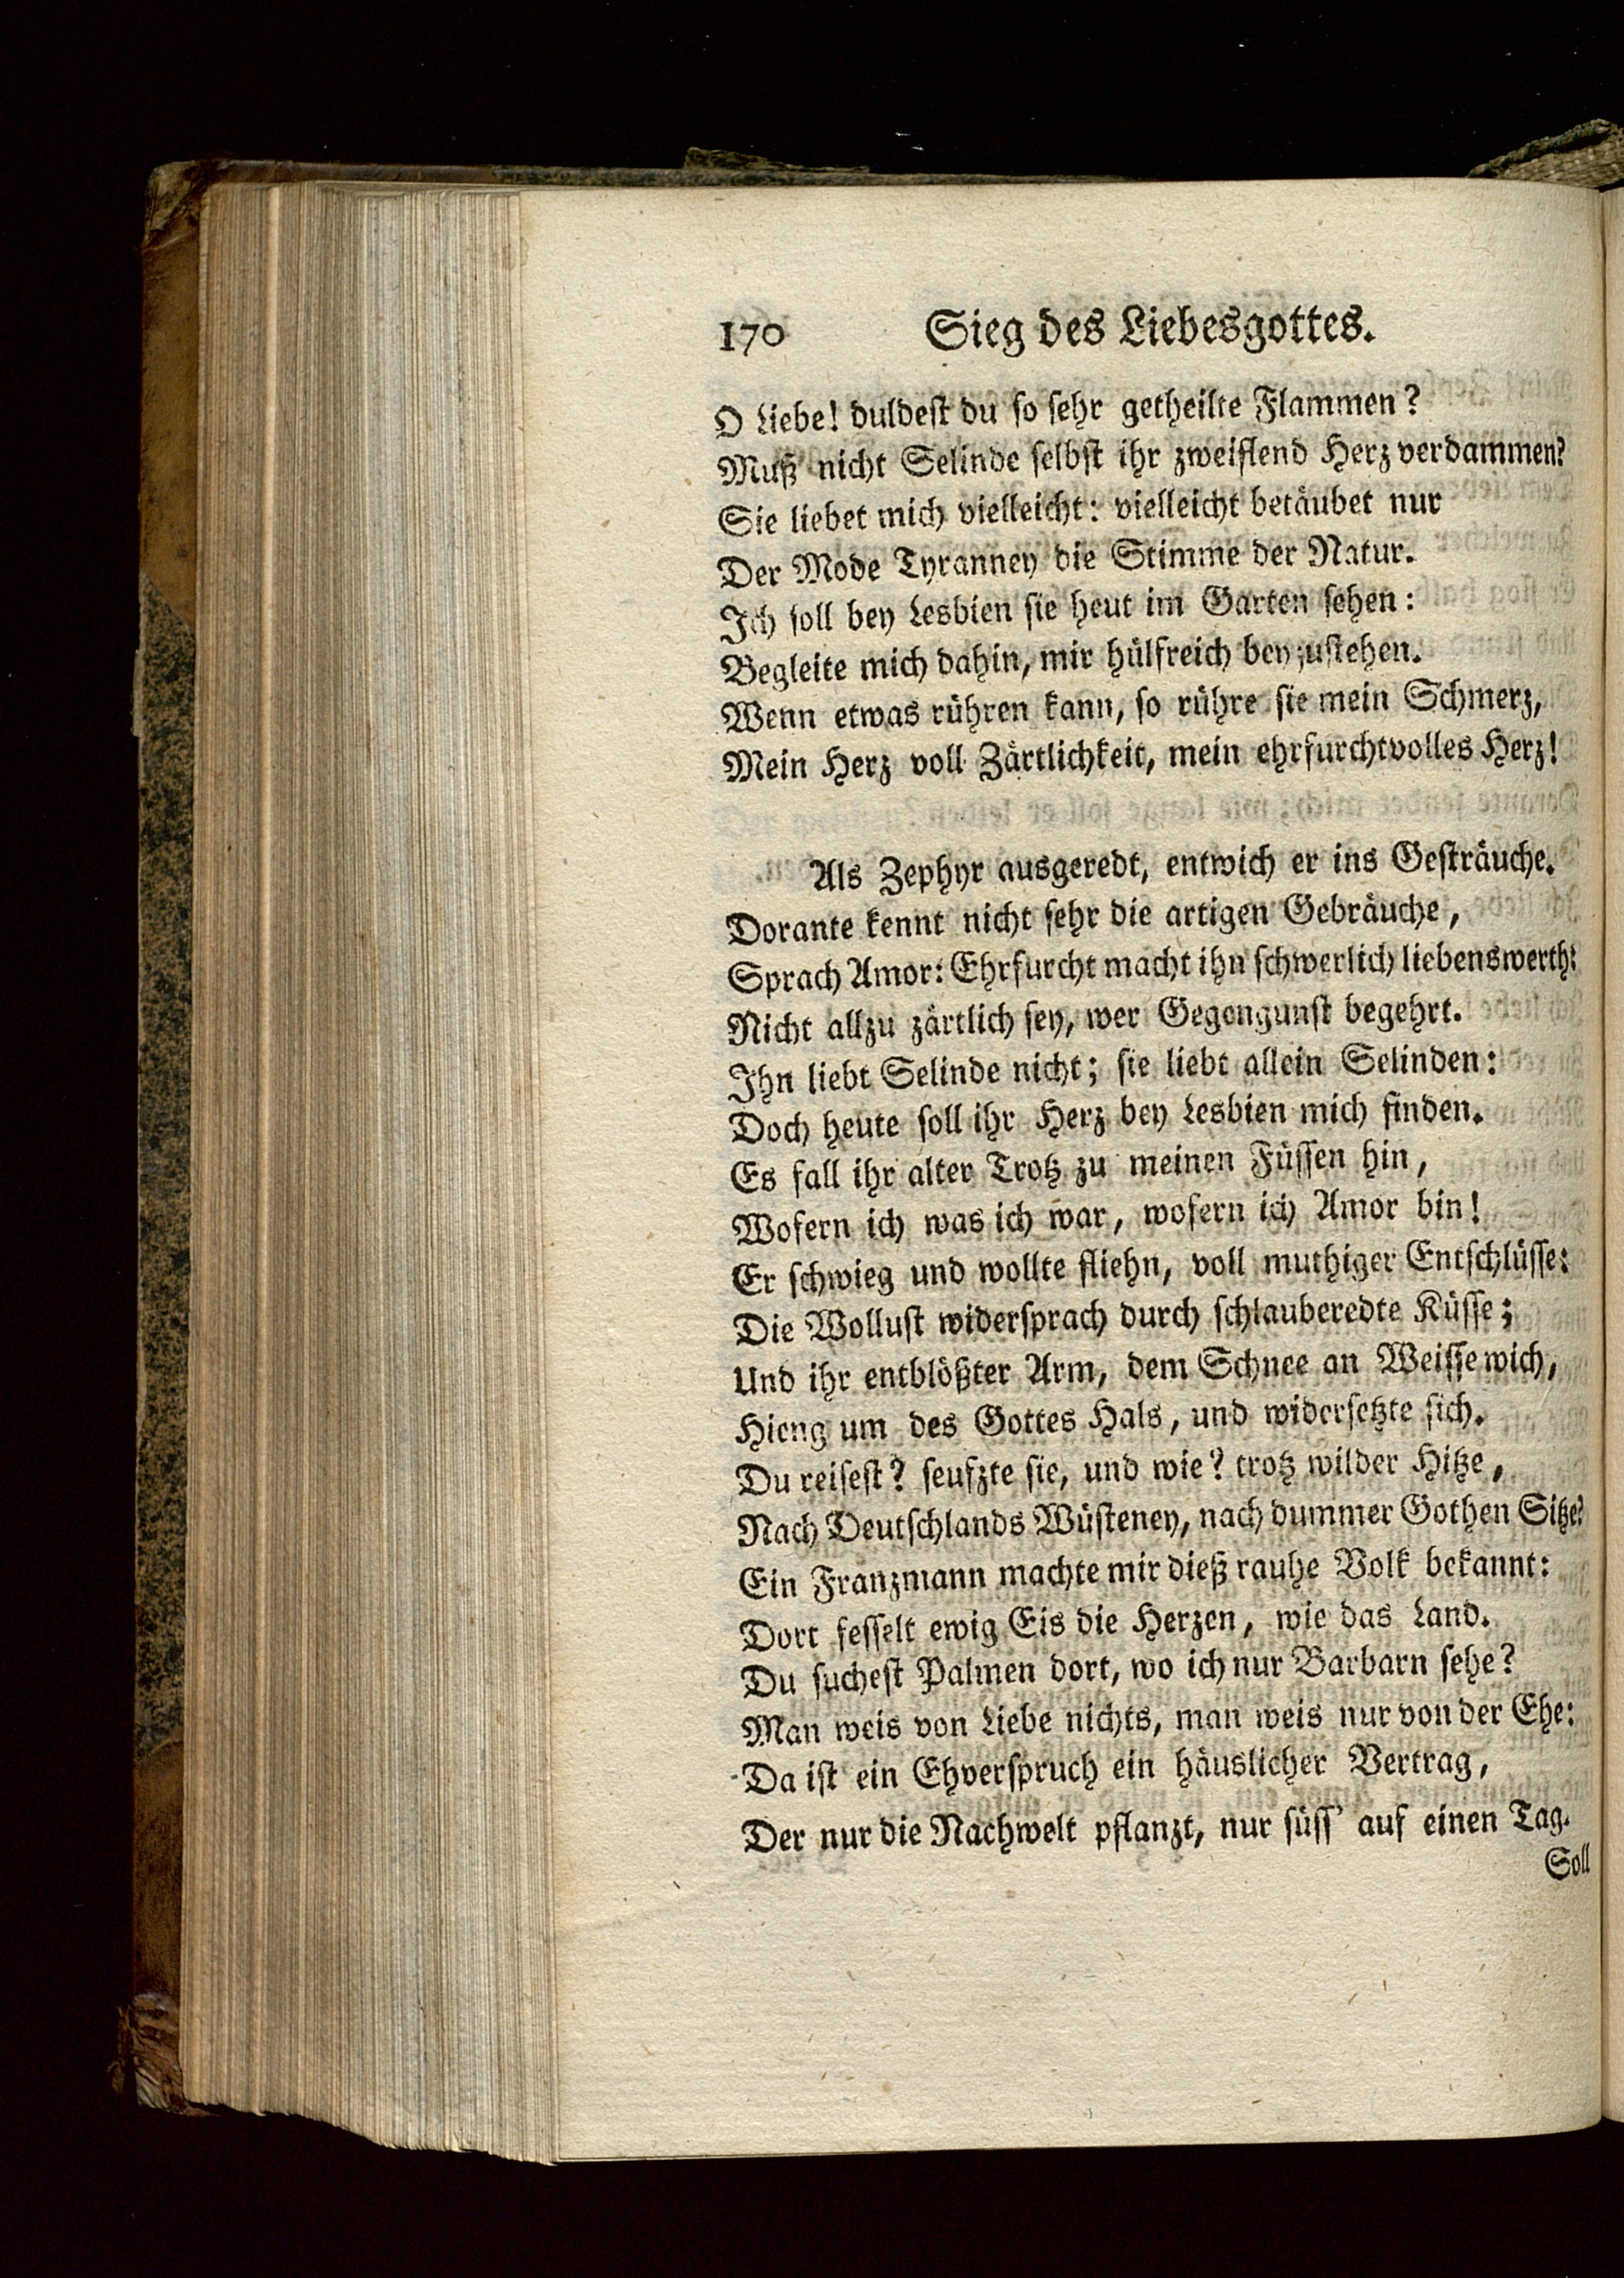 170 Sieg des Liebesgottes.
O Liebe! duldest du so sehr getheilte Flammen?
Muß nicht Selinde selbst ihr zweiflend Herz verdammen?
Sie liebet mich vielleicht: vielleicht betäubet nur
Der Mode Tyranney die Stimme der Natur.
Ich soll bey Lesbien sie heut im Garten sehen:
Begleite mich dahin, mir hülfreich beyzustehen.
Wenn etwas rühren kann, so rühre sie mein Schmerz,
Mein Herz voll Zärtlichkeit, mein ehrfurchtvolles Herz!
Als Zephyr ausgeredt, entwich er ins Gesträuche.
Dorante kennt nicht sehr die artigen Gebräuche,
Sprach Amor: Ehrfurcht macht ihn schwerlich liebenswerth:
Nicht allzu zärtlich sey, wer Gegengunst begehrt.
Ihn liebt Selinde nicht; sie liebt allein Selinden:
Doch heute soll ihr Herz bey Lesbien mich finden.
Es fall ihr alter Trotz zu meinen Füssen hin,
Wofern ich was ich war, wofern ich Amor bin!
Er schwieg und wollte fliehn, voll muthiger Entschlüsse:
Die Wollust widersprach durch schlauberedte Küsse;
Und ihr entblößter Arm, dem Schnee an Weisse wich,
Hieng um des Gottes Hals, und widersetzte sich.
Du reisest? seufzte sie, und wie? trotz wilder Hitze,
Nach Deutschlands Wüsteney, nach dummer Gothen Sitze?
Ein Franzmann machte mir dieß rauhe Volk bekannt:
Dort fesselt ewig Eis die Herzen, wie das Land.
Du suchest Palmen dort, wo ich nur Barbarn sehe?
Man weis von Liebe nichts, man weis nur von der Ehe:
Da ist ein Ehverspruch ein häuslicher Vertrag,
Der nur die Nachwelt pflanzt, nur süss' auf einen Tag.
Soll